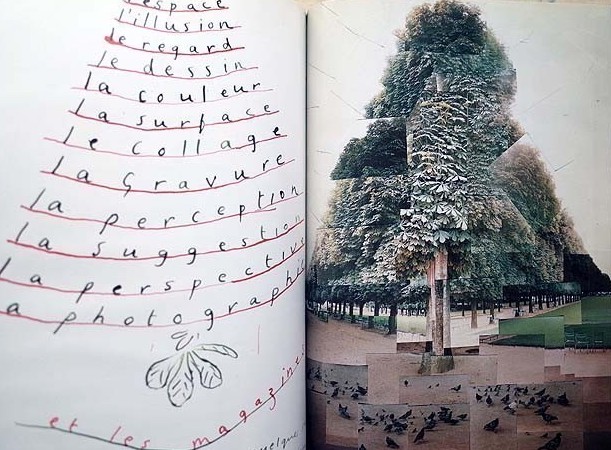 espace
l'illusion
le regard
le dessin
la couleur
la surface
le collage
la gravure
la perception
la suggestion
la perspective
a photographie
et les magazine
quelque